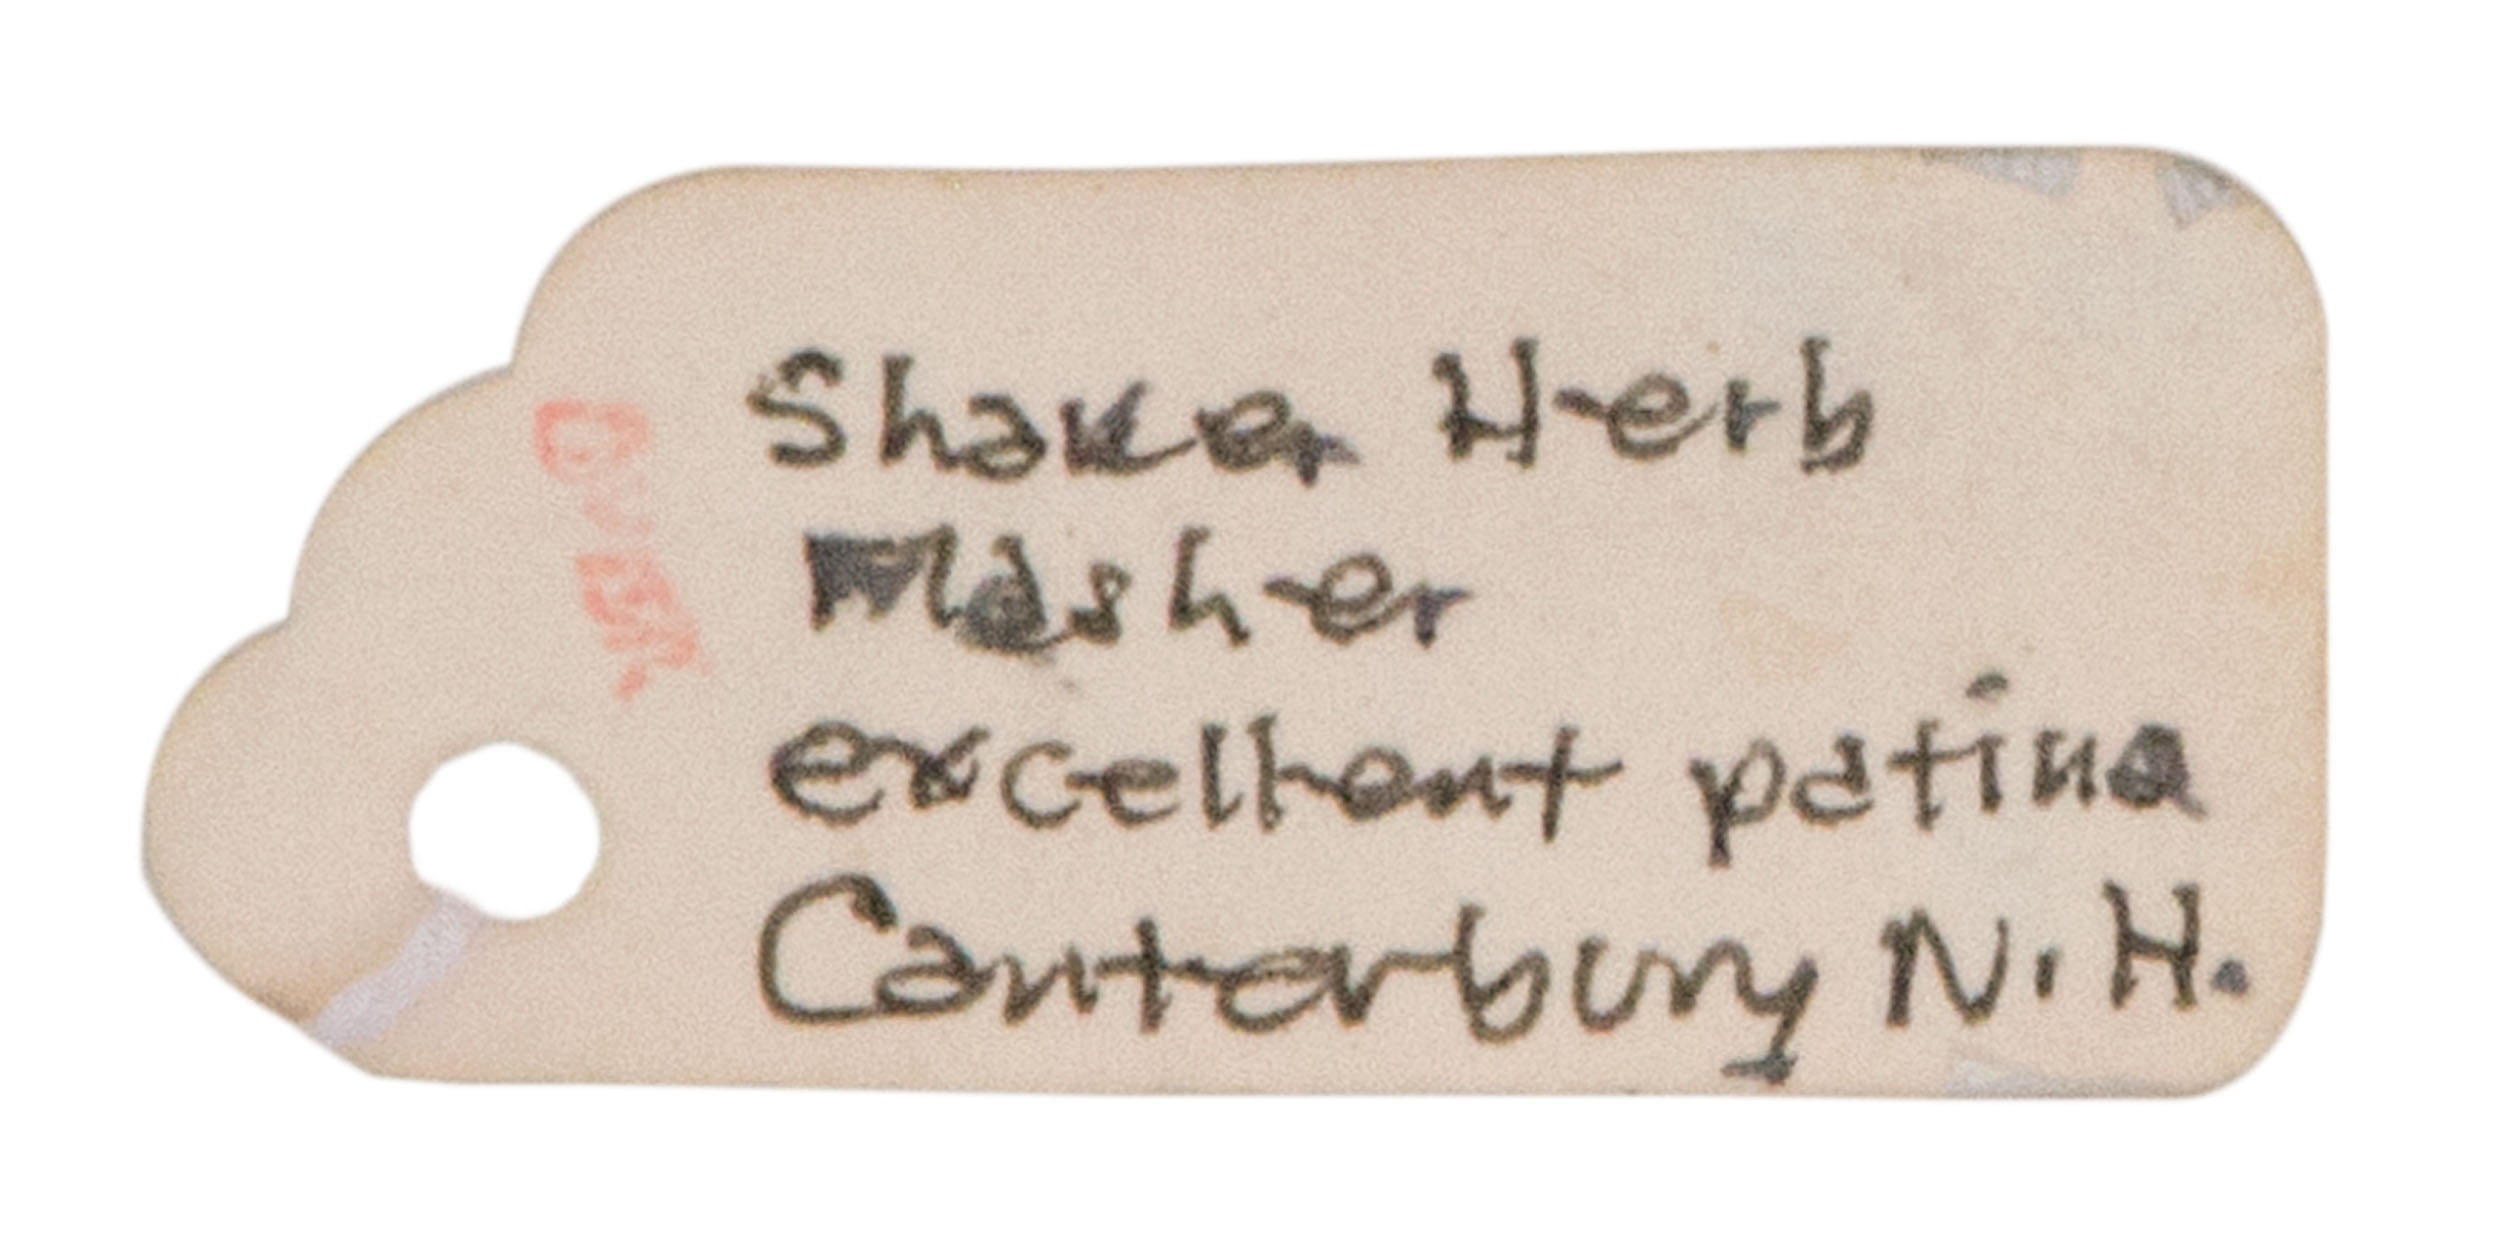 Shaker Herb
Masher
excellent patina
Canterbury N.H.